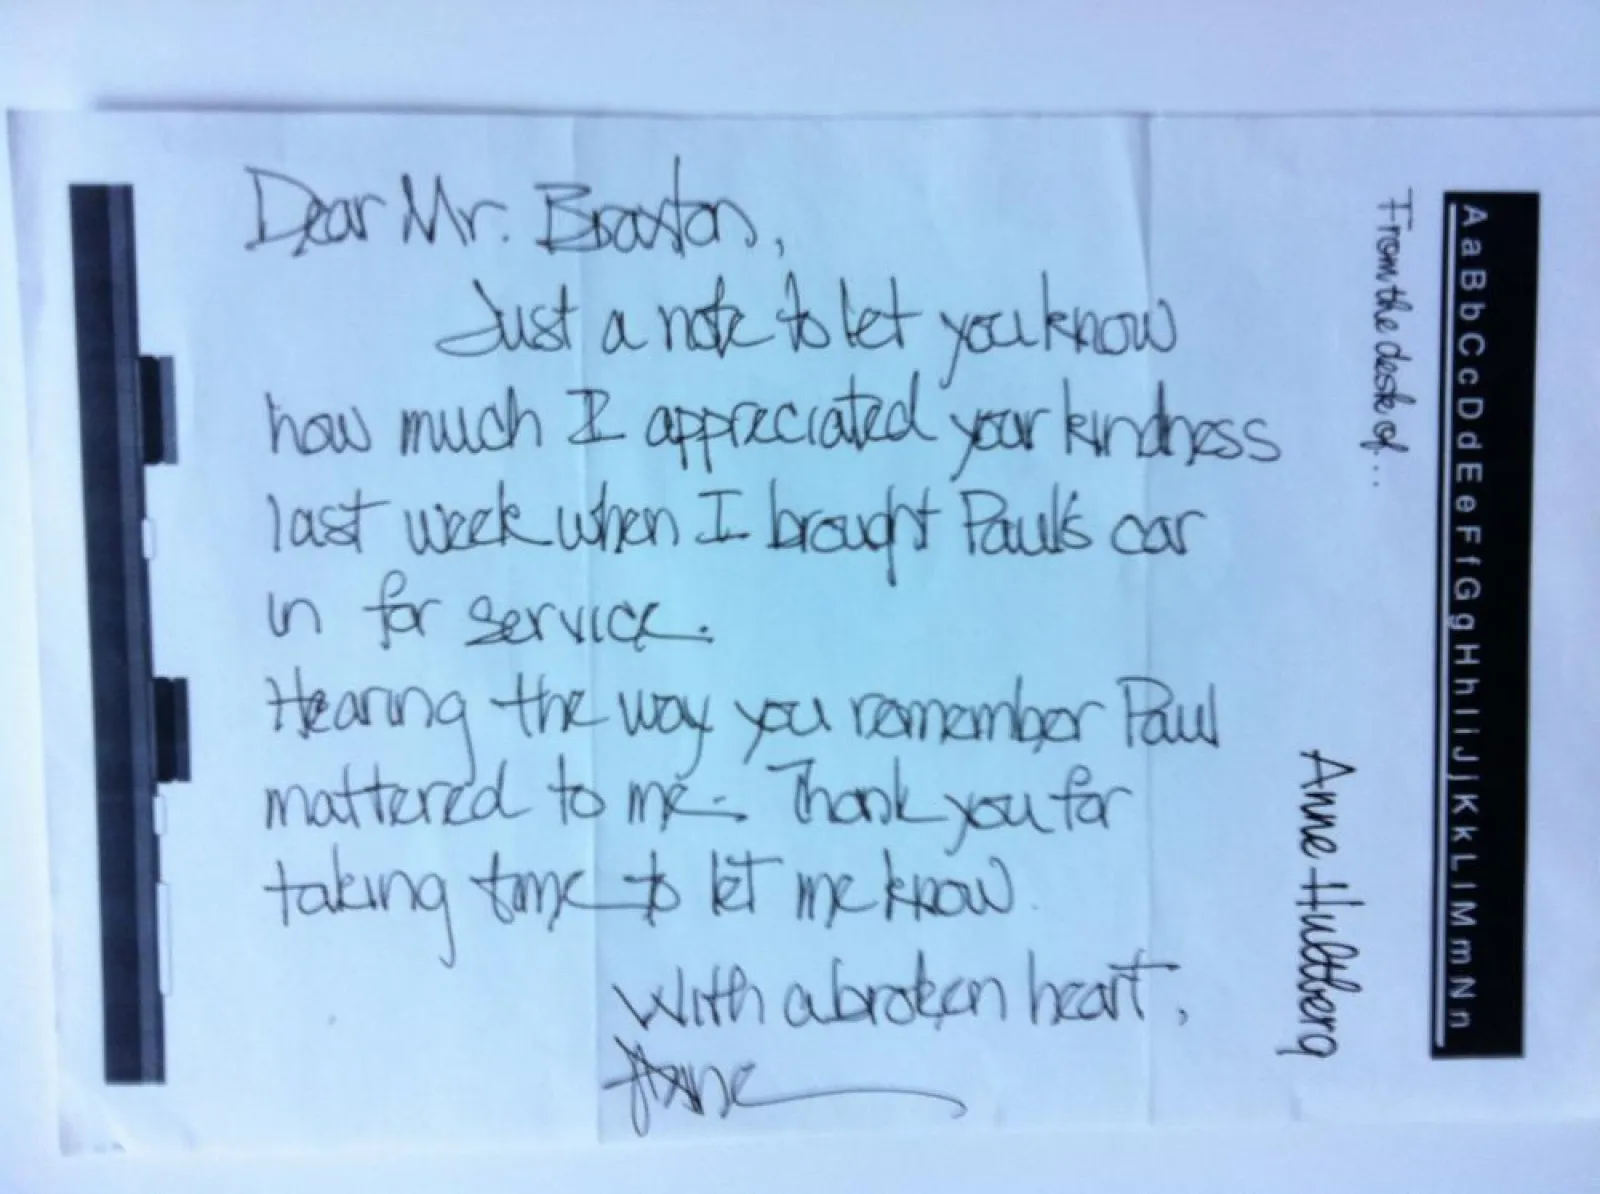 Dear Mr. Braxton,
Just a note to let you know
how much I appreciated your kindness
last week when I brought Paul's car
in for service.
Hearing the way you remember Paul
mattered to me. Thank you for
taking time to let me know.
With a broken heart,
Anne
From the desk of...
Anne Hultberg
A a B b C c D d E e F f G g H h I i J j K k L l M m N n